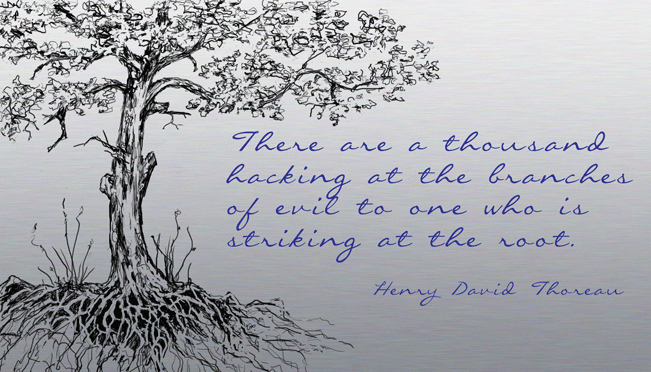 There are a thousand
hacking at the branches
of evil to one who is
striking at the root.
Henry David Thoreau